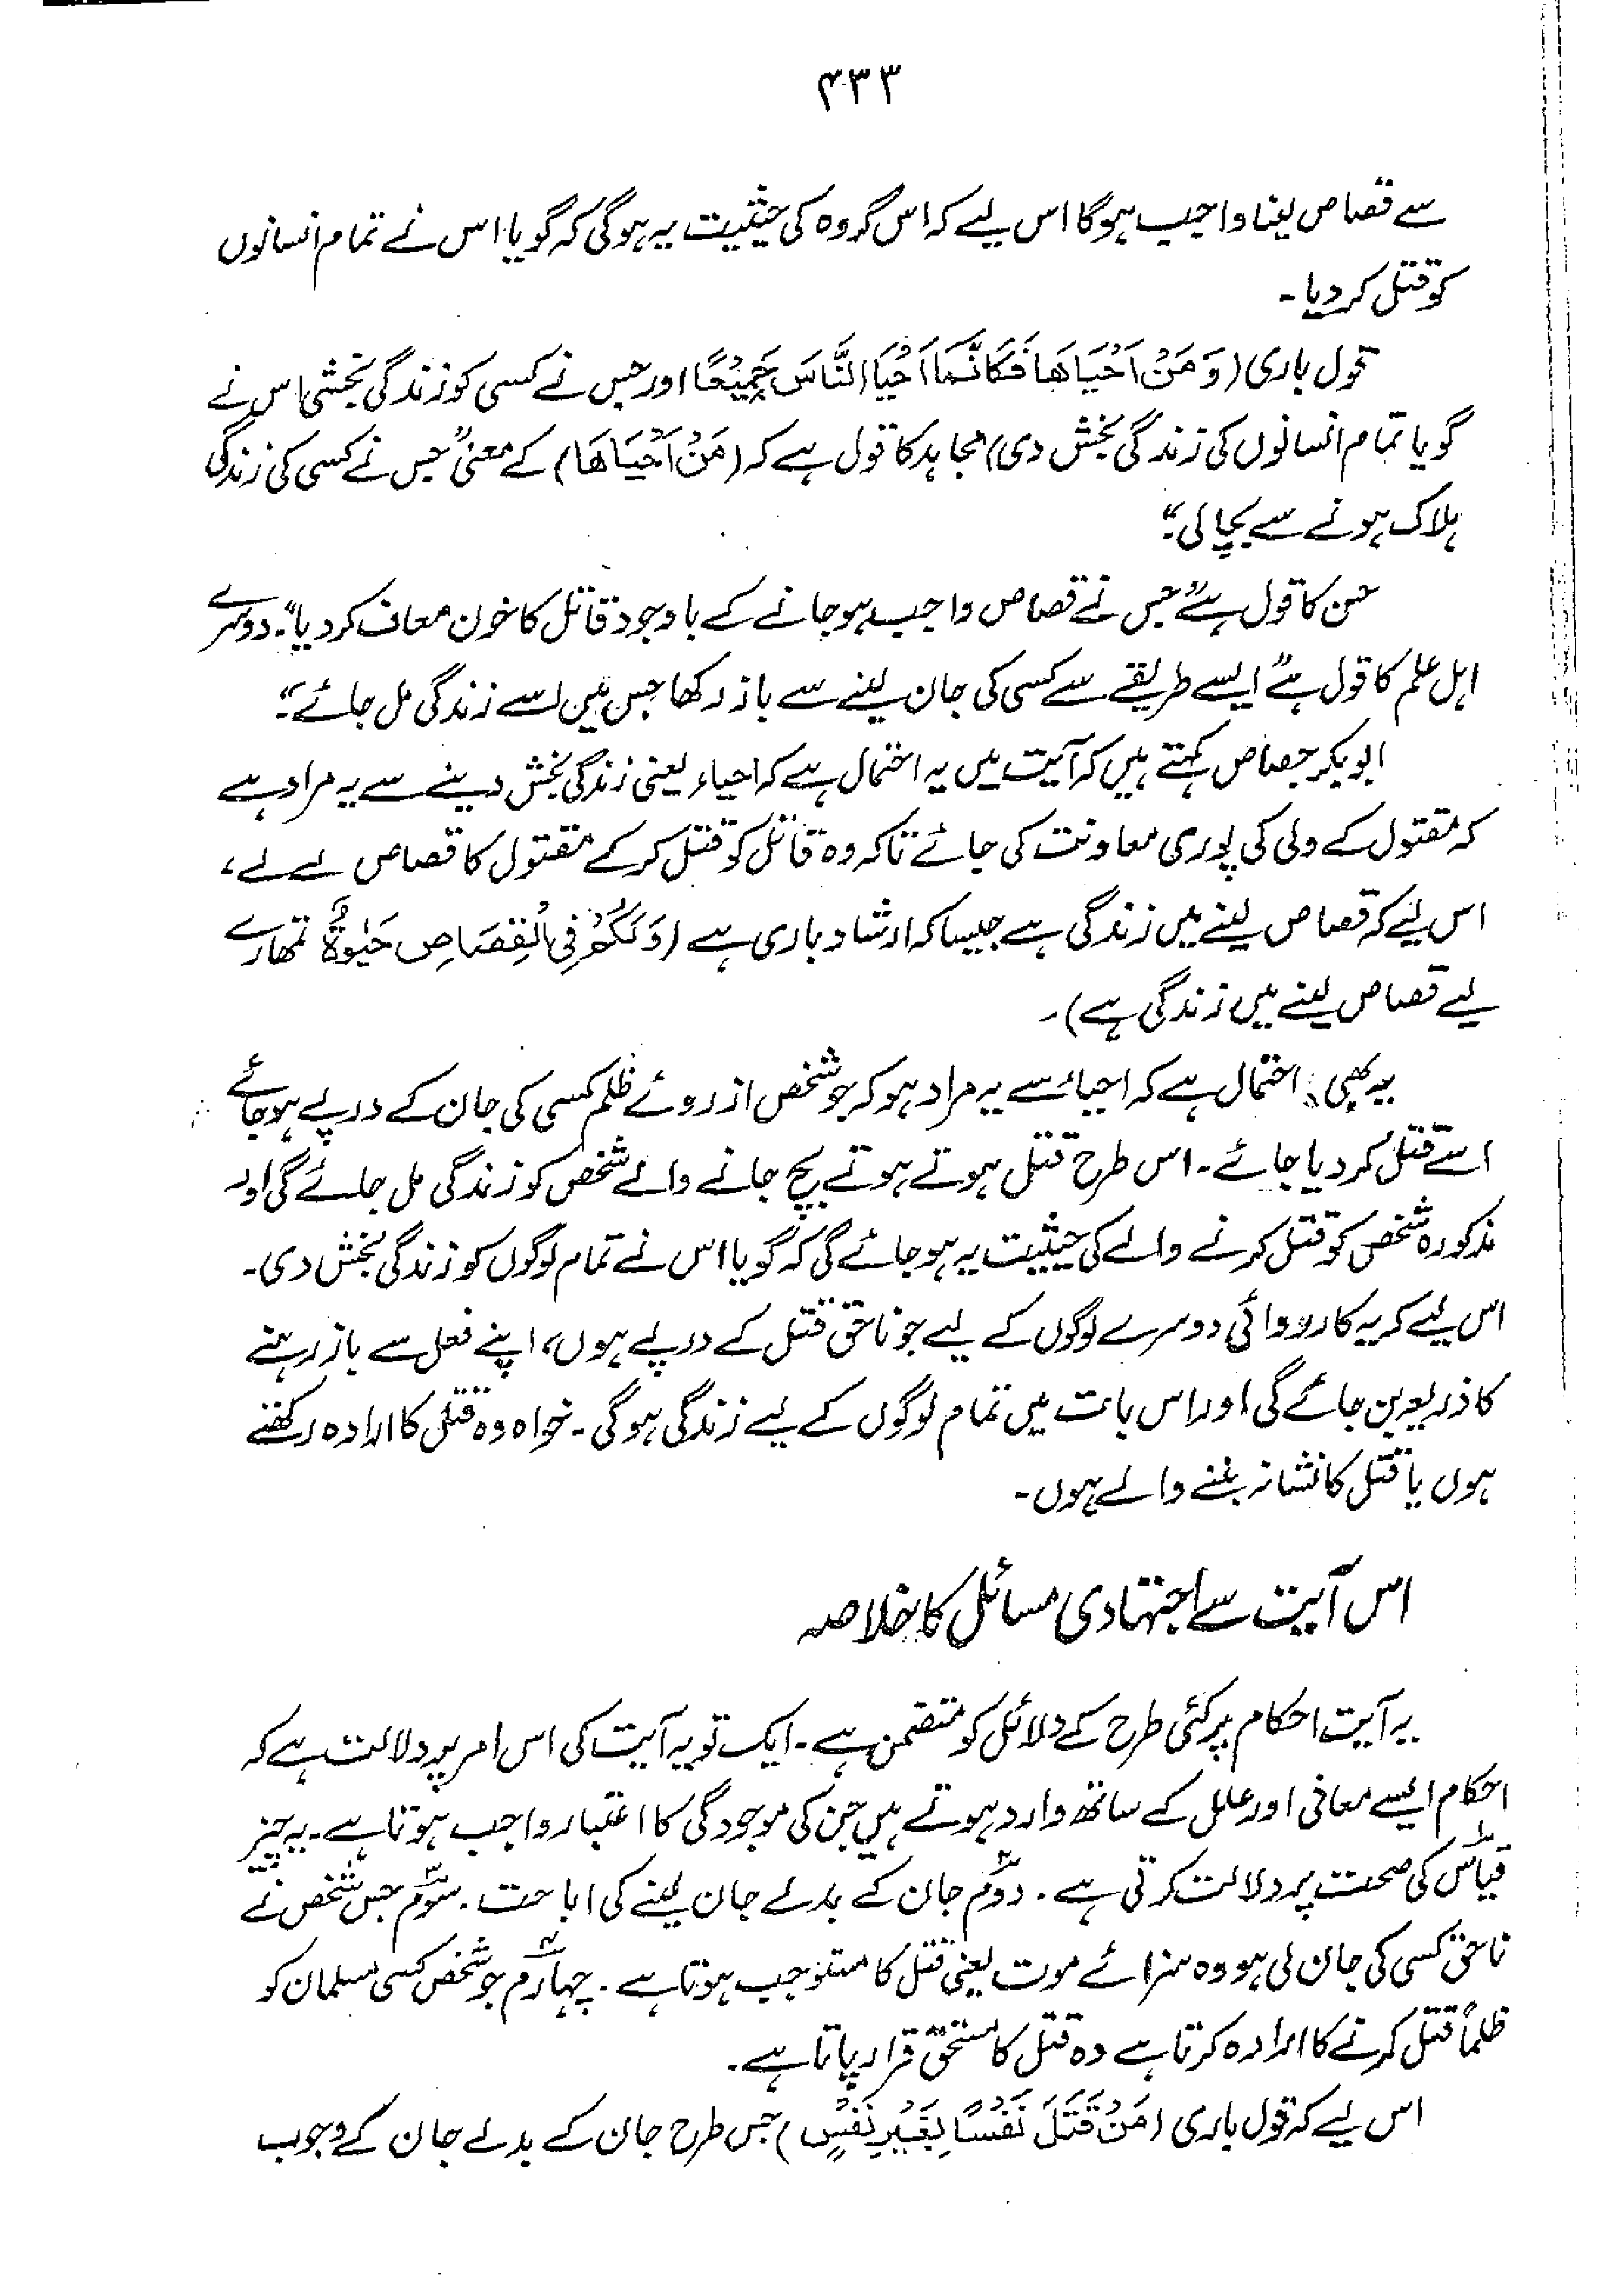 ۴۳۳
سے قصاص لینا واجب ہوگا اس لیے کہ اس گروہ کی حیثیت یہ ہوگی کہ گویا اس نے تمام انسانوں
کو قتل کر دیا۔
قول باری (وَمَنْ اَحْيَاهَا فَكَاَنَّمَا اَحْيَا النَّاسَ جَمِيْعًا اور جس نے کسی کو زندگی بخشی اس نے
گویا تمام انسانوں کی زندگی بخش دی) مجاہد کا قول ہے کہ (مَنْ اَحْيَاهَا) کے معنی "جس نے کسی کی زندگی
ہلاک ہونے سے بچا لی"۔
حسن کا قول ہے "جس نے قصاص واجب ہو جانے کے باوجود قاتل کا خون معاف کر دیا"۔ دوسرے
اہل علم کا قول ہے "ایسے طریقے سے کسی کی جان لینے سے باز رکھا جس میں اسے زندگی مل جائے"۔
ابوبکر جصاص کہتے ہیں کہ آیت میں یہ احتمال ہے کہ احیاء یعنی زندگی بخش دینے سے یہ مراد ہے
کہ مقتول کے ولی کی پوری معاونت کی جائے تاکہ وہ قاتل کو قتل کر کے مقتول کا قصاص لے لے،
اس لیے کہ قصاص لینے میں زندگی ہے جیسا کہ ارشاد باری ہے (وَلَكُمْ فِي الْقِصَاصِ حَيٰوةٌ تمھارے
لیے قصاص لینے میں زندگی ہے)۔
یہ بھی احتمال ہے کہ احیاء سے یہ مراد ہو کہ جو شخص ازروئے ظلم کسی کی جان کے درپے ہو جائے
اسے قتل کر دیا جائے۔ اس طرح قتل ہوتے ہوتے بچ جانے والے شخص کو زندگی مل جائے گی اور
مذکورہ شخص کو قتل کرنے والے کی حیثیت یہ ہو جائے گی کہ گویا اس نے تمام لوگوں کو زندگی بخش دی۔
اس لیے کہ یہ کارروائی دوسرے لوگوں کے لیے جو ناحق قتل کے درپے ہوں، اپنے فعل سے باز رہنے
کا ذریعہ بن جائے گی اور اس بات میں تمام لوگوں کے لیے زندگی ہوگی۔ خواہ وہ قتل کا ارادہ رکھتے
ہوں یا قتل کا نشانہ بننے والے ہوں۔
اس آیت سے اجتہادی مسائل کا خلاصہ
یہ آیت احکام پر کئی طرح کے دلائل کو متضمن ہے۔ ایک تو یہ آیت کی اس امر پر دلالت ہے کہ
احکام ایسے معانی اور علل کے ساتھ وارد ہوتے ہیں جن کی موجودگی کا اعتبار واجب ہوتا ہے۔ یہ چیز
قیاس کی صحت پر دلالت کرتی ہے۔ دوم جان کے بدلے جان لینے کی اباحت۔ سوم جس شخص نے
ناحق کسی کی جان لی ہو وہ سزائے موت یعنی قتل کا مستوجب ہوتا ہے۔ چہارم جو شخص کسی مسلمان کو
ظلماً قتل کرنے کا ارادہ کرتا ہے وہ قتل کا مستحق قرار پاتا ہے۔
اس لیے کہ قول باری (مَنْ قَتَلَ نَفْسًا بِغَيْرِ نَفْسٍ) جس طرح جان کے بدلے جان کے وجوب